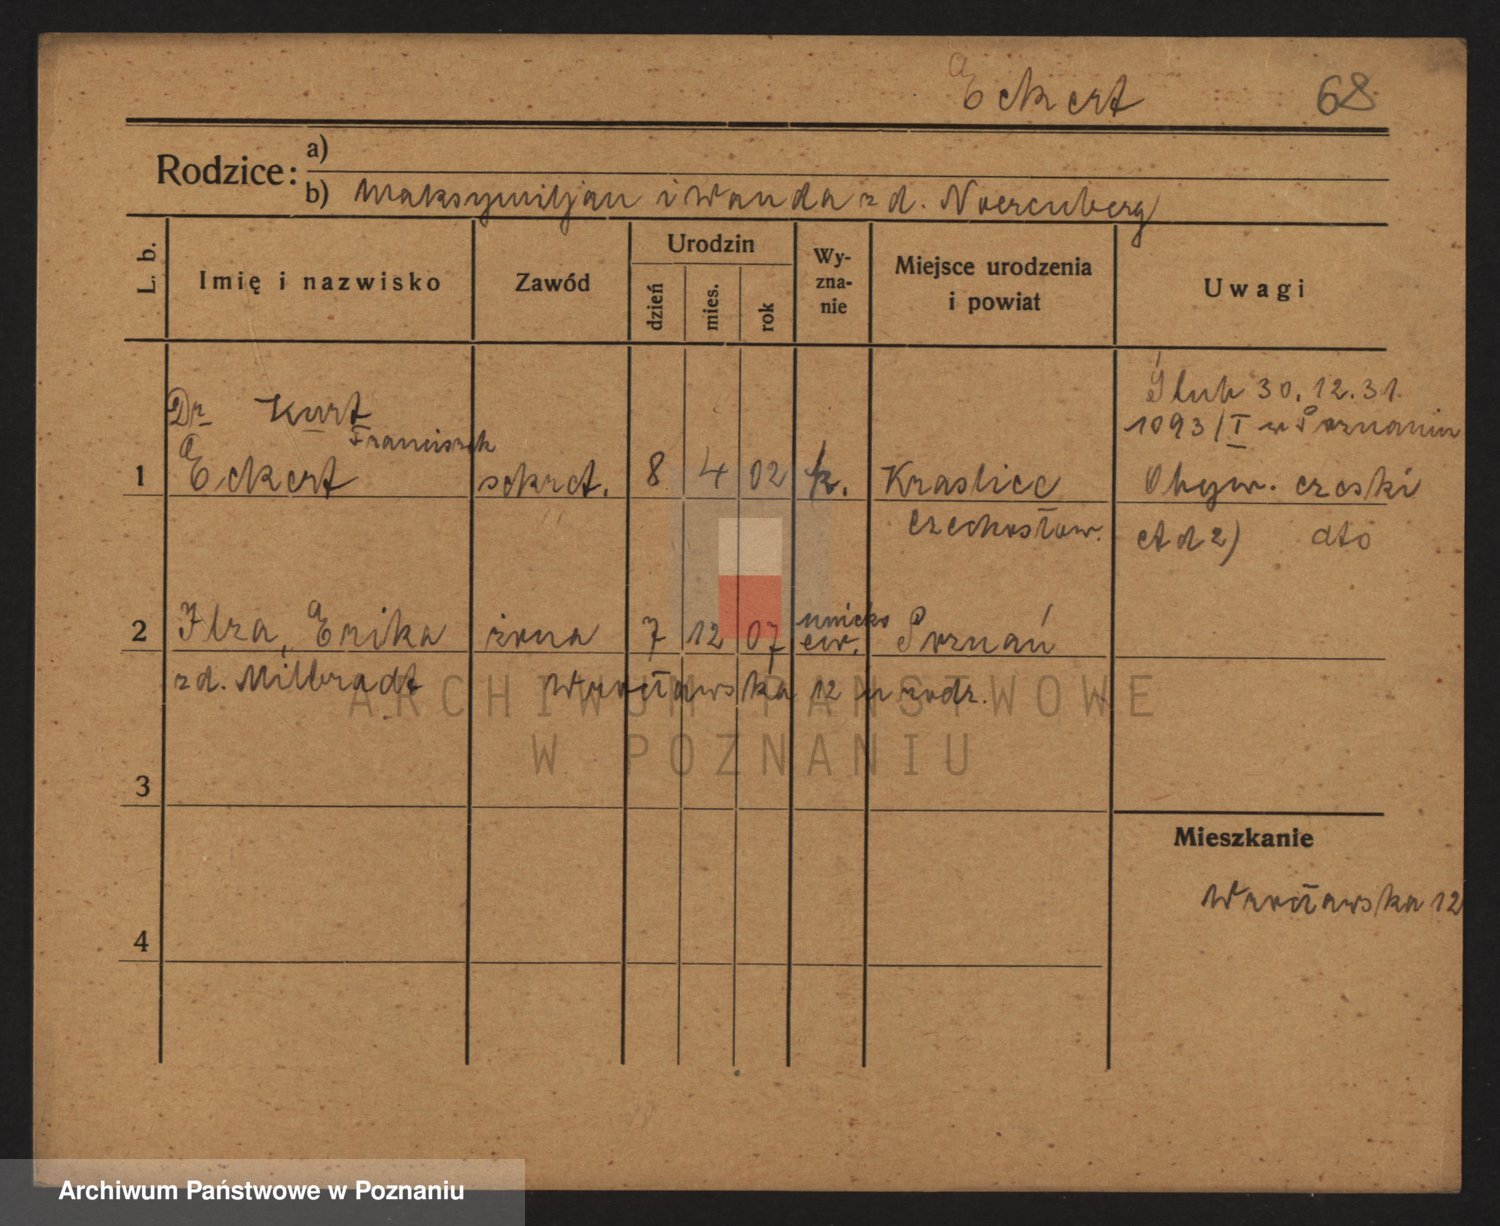 Eckert 68
Rodzice: a)
b) Maksymiljan i Wanda z d. Noerenberg
L. b. Imię i nazwisko Zawód Urodzin Wy-zna-nie Miejsce urodzenia i powiat Uwagi
dzień mies. rok
Dr Kurt Ślub 30. 12. 31.
Franciszek 1093/I w Poznaniu
1 Eckert sekret. 8 4 02 k. Kraslice Obyw. czeski
Czechosłow. Ad 2) dto
2 Ilza, Erika żona 7 12 07 ew. Poznań
z d. Milbradt Wrocławska 12 u rodz.
ARCHIWUM PAŃSTWOWE
W POZNANIU
3
Mieszkanie
Wrocławska 12
4
Archiwum Państwowe w Poznaniu